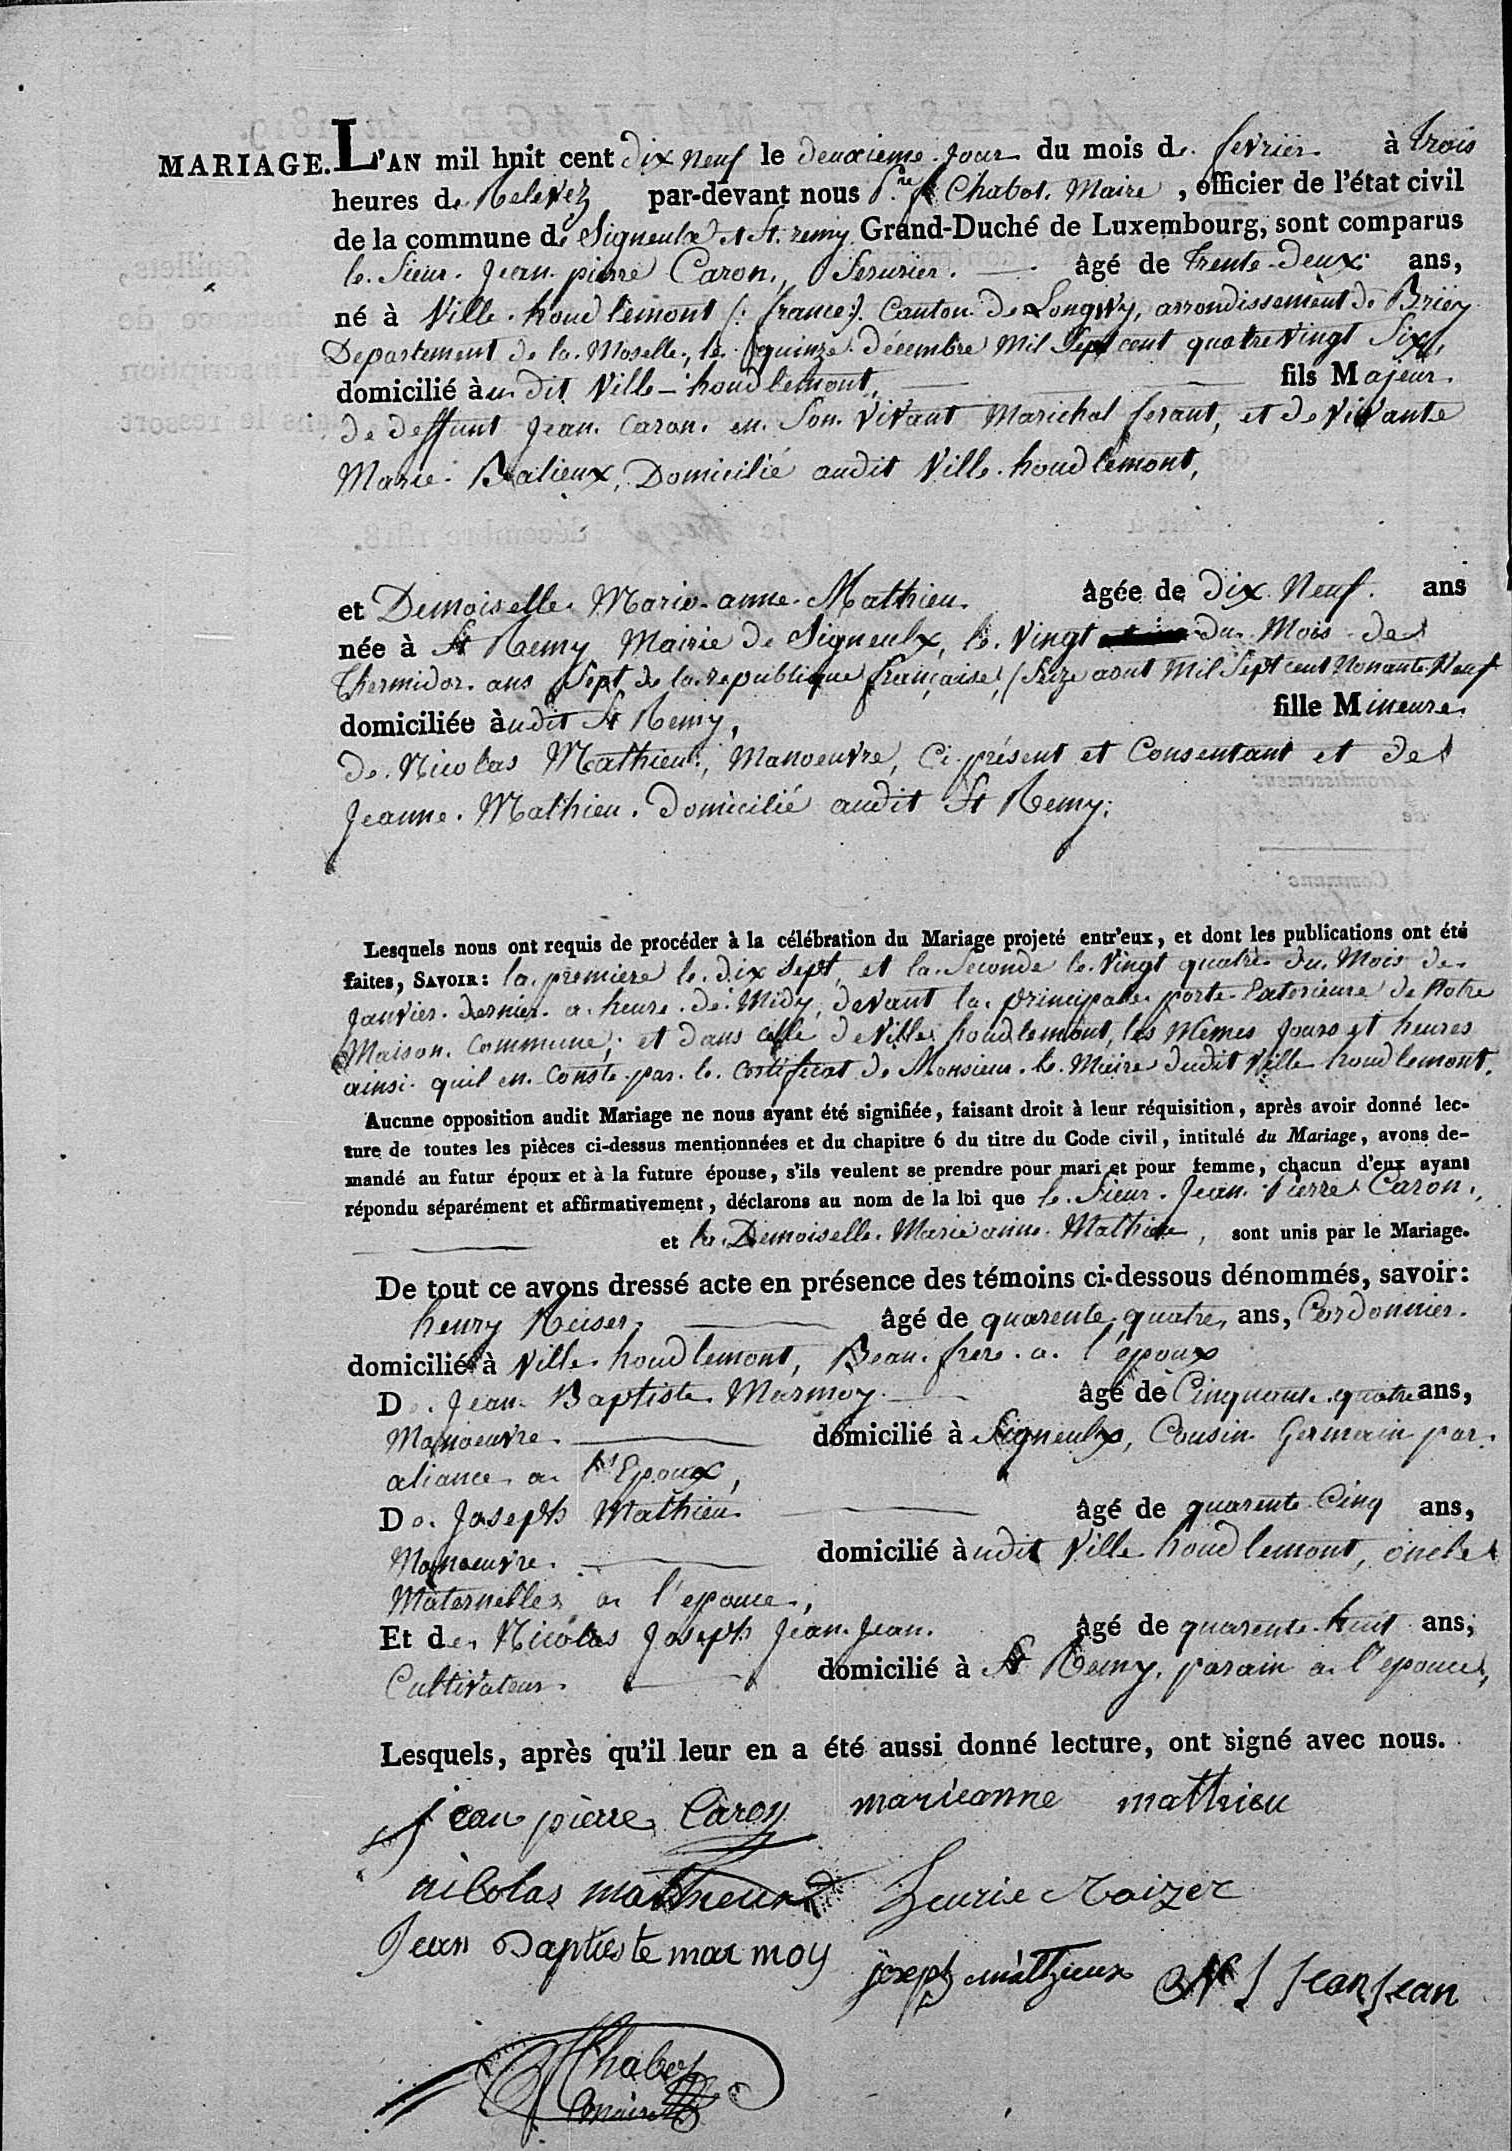 MARIAGE. L'AN mil huit cent dix neuf le deuxieme jour du mois de fevrier à trois
heures de Relevez par-devant nous P.re J. Chabot. Maire, officier de l'état civil
de la commune de Signeulx et St. remy Grand-Duché de Luxembourg, sont comparus
le Sieur Jean pierre Caron, Serurier. âgé de trente-deux ans,
né à Ville houdlemont (: france :) Canton de Longwy, arrondissement de Briey
Departement de la Moselle, le quinze décembre Mil Sept cent quatrevingt Six,
domicilié àu dit Ville-houdlemont, fils Majeur.
de deffunt Jean Caron. en Son Vivant Marichal ferant, et de vivante
Marie Balieux, Domicilié audit Ville houdlemont,
et Demoiselle Marie anne Mathieu. âgée de Dix Neuf. ans
née à St Remy Mairie de Signeulx, le Vingt du Mois de
Thermidor ans Sept de la republique française, (Seize aout Mil Sept cent Nonante Neuf
domiciliée àudit St Remy, fille Mineure
de Nicolas Mathieu, Manoeuvre, Ci présent et Consentant et de
Jeanne Mathieu. domicilié audit St Remy;
Lesquels nous ont requis de procéder à la célébration du Mariage projeté entr'eux, et dont les publications ont été
faites, SAVOIR: la premiere le dix sept et la Seconde le Vingt quatre du Mois de
Janvier dernier a heure de Midy, devant la principale porte Exterieure de Notre
Maison Commune; et dans celle de Ville houdlemont, les Mêmes Jours et heures
ainsi quil en Conste par le Certificat de Monsieur le Maire dudit Ville houdlemont.
Aucune opposition audit Mariage ne nous ayant été signifiée, faisant droit à leur réquisition, après avoir donné lec-
ture de toutes les pièces ci-dessus mentionnées et du chapitre 6 du titre du Code civil, intitulé du Mariage, avons de-
mandé au futur époux et à la future épouse, s'ils veulent se prendre pour mari et pour femme, chacun d'eux ayant
répondu séparément et affirmativement, déclarons au nom de la loi que le Sieur Jean Pierre Caron,
et la Demoiselle Marie anne Mathieu, sont unis par le Mariage.
De tout ce avons dressé acte en présence des témoins ci-dessous dénommés, savoir:
henry Reiser, âgé de quarente quatre ans, Cordonnier.
domicilié à Ville houdlemont, Beau frere a l'epoux
De Jean Baptiste Marmoy âgé de Cinquante quatre ans,
Manoeuvre domicilié à Signeulx, Cousin Germain par
aliance a Epoux,
De Joseph Mathieu âgé de quarente Cinq ans,
Manoeuvre. domicilié àudit Ville houdlemont, oncle
Maternelle a l'epouce,
Et de Nicolas Joseph Jean Jean. âgé de quarente huit ans,
Cultivateur domicilié à St Remy, parain a l'epouce,
Lesquels, après qu'il leur en a été aussi donné lecture, ont signé avec nous.
jean pierre Caron marieanne mathieu
nicolas mathieux henrie Raizer
Jean Baptiste marmoy joseph mathieux N J Jean Jean
Chabot
maire